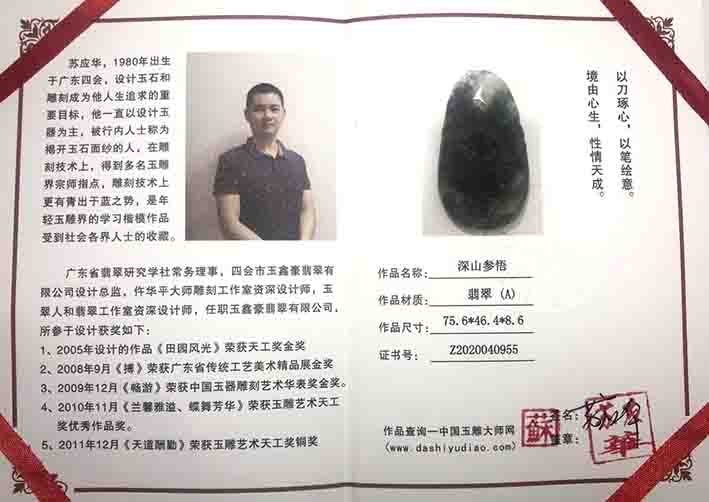 苏应华，1980年出生
于广东四会，设计玉石和
雕刻成为他人生追求的重
要目标，他一直以设计玉
器为主，被行内人士称为
揭开玉石面纱的人，在雕
刻技术上，得到多名玉雕
界宗师指点，雕刻技术上
更有青出于蓝之势，是年
轻玉雕界的学习楷模作品
受到社会各界人士的收藏。
广东省翡翠研究学社常务理事，四会市玉鑫豪翡翠有
限公司设计总监，仵华平大师雕刻工作室资深设计师，玉
翠人和翡翠工作室资深设计师，任职玉鑫豪翡翠有限公司，
所参于设计获奖如下：
1、2005年设计的作品《田园风光》荣获天工奖金奖
2、2008年9月《搏》荣获广东省传统工艺美术精品展金奖
3、2009年12月《畅游》荣获中国玉器雕刻艺术华表奖金奖。
4、2010年11月《兰馨雅溢、蝶舞芳华》荣获玉雕艺术天工
奖优秀作品奖。
5、2011年12月《天道酬勤》荣获玉雕艺术天工奖铜奖
以刀琢心，以笔绘意。
境由心生，性情天成。
作品名称：深山参悟
作品材质：翡翠（A）
作品尺寸：75.6*46.4*8.6
证书号：Z2020040955
作品查询—中国玉雕大师网
(www.dashiyudiao.com)
蘇
签名：
盖章：